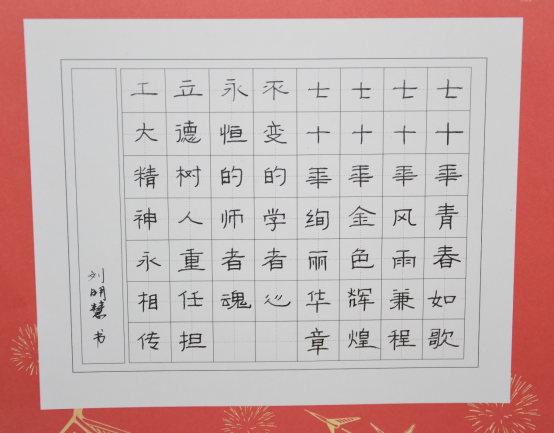 七十年青春如歌
七十年风雨兼程
七十年金色辉煌
七十年绚丽华章
不变的学者心
永恒的师者魂
立德树人重任担
工大精神永相传
刘明慧 书